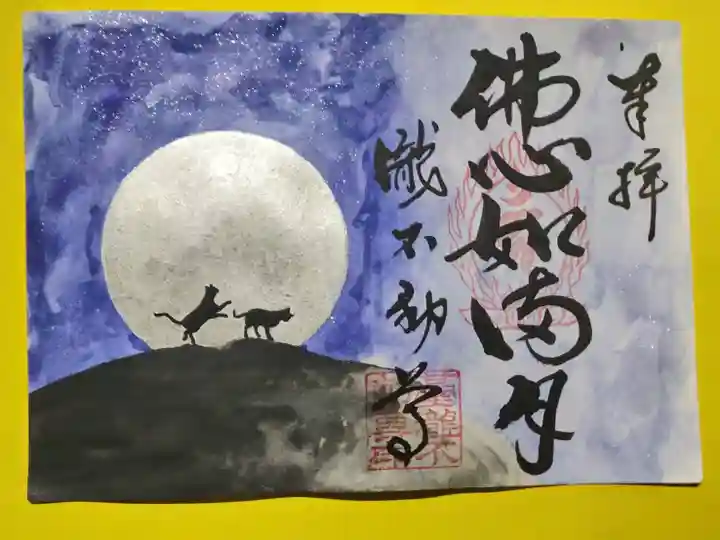 奉拝
佛心如満月
瀧不動尊